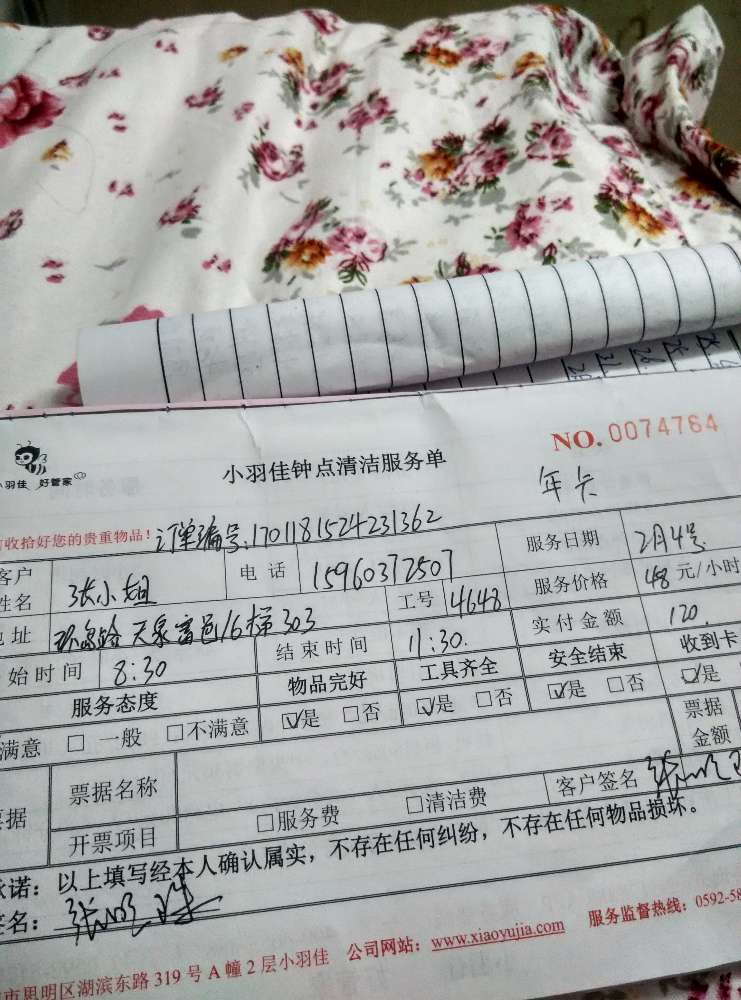 NO.0074764
小羽佳 好管家
小羽佳钟点清洁服务单
年卡
收拾好您的贵重物品! 订单编号:1701181524231362
客户姓名 张小姐 电话 15960372507 服务日期 2月4号
地址 环岛路 天泉富邑16梯303 工号 4648 服务价格 48元/小时
始时间 8:30 结束时间 11:30. 实付金额 120.
服务态度 物品完好 工具齐全 安全结束 收到卡
满意 □ 一般 □不满意 ☑是 □否 ☑是 □否 ☑是 □否 ☑是
票据 票据名称 客户签名 票据金额
开票项目 □服务费 □清洁费
承诺:以上填写经本人确认属实,不存在任何纠纷,不存在任何物品损坏。
签名:
市思明区湖滨东路319号A幢2层小羽佳 公司网站:www.xiaoyujia.com 服务监督热线:0592-58